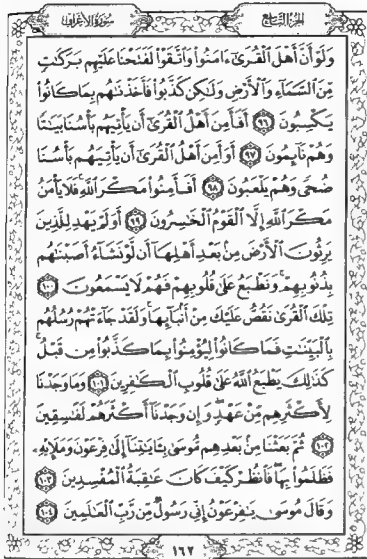 الجزء التاسع
سورة الأعراف
وَلَوْ أَنَّ أَهْلَ ٱلْقُرَىٰٓ ءَامَنُوا۟ وَٱتَّقَوْا۟ لَفَتَحْنَا عَلَيْهِم بَرَكَٰتٍ
مِّنَ ٱلسَّمَآءِ وَٱلْأَرْضِ وَلَٰكِن كَذَّبُوا۟ فَأَخَذْنَٰهُم بِمَا كَانُوا۟
يَكْسِبُونَ ٩٦ أَفَأَمِنَ أَهْلُ ٱلْقُرَىٰٓ أَن يَأْتِيَهُم بَأْسُنَا بَيَٰتًا
وَهُمْ نَآئِمُونَ ٩٧ أَوَأَمِنَ أَهْلُ ٱلْقُرَىٰٓ أَن يَأْتِيَهُم بَأْسُنَا
ضُحًى وَهُمْ يَلْعَبُونَ ٩٨ أَفَأَمِنُوا۟ مَكْرَ ٱللَّهِ ۚ فَلَا يَأْمَنُ
مَكْرَ ٱللَّهِ إِلَّا ٱلْقَوْمُ ٱلْخَٰسِرُونَ ٩٩ أَوَلَمْ يَهْدِ لِلَّذِينَ
يَرِثُونَ ٱلْأَرْضَ مِنۢ بَعْدِ أَهْلِهَآ أَن لَّوْ نَشَآءُ أَصَبْنَٰهُم
بِذُنُوبِهِمْ ۚ وَنَطْبَعُ عَلَىٰ قُلُوبِهِمْ فَهُمْ لَا يَسْمَعُونَ ١٠٠
تِلْكَ ٱلْقُرَىٰ نَقُصُّ عَلَيْكَ مِنْ أَنۢبَآئِهَا ۚ وَلَقَدْ جَآءَتْهُمْ رُسُلُهُم
بِٱلْبَيِّنَٰتِ فَمَا كَانُوا۟ لِيُؤْمِنُوا۟ بِمَا كَذَّبُوا۟ مِن قَبْلُ ۚ
كَذَٰلِكَ يَطْبَعُ ٱللَّهُ عَلَىٰ قُلُوبِ ٱلْكَٰفِرِينَ ١٠١ وَمَا وَجَدْنَا
لِأَكْثَرِهِم مِّنْ عَهْدٍ ۖ وَإِن وَجَدْنَآ أَكْثَرَهُمْ لَفَٰسِقِينَ
١٠٢ ثُمَّ بَعَثْنَا مِنۢ بَعْدِهِم مُّوسَىٰ بِـَٔايَٰتِنَآ إِلَىٰ فِرْعَوْنَ وَمَلَإِي۟هِۦ
فَظَلَمُوا۟ بِهَا ۖ فَٱنظُرْ كَيْفَ كَانَ عَٰقِبَةُ ٱلْمُفْسِدِينَ ١٠٣
وَقَالَ مُوسَىٰ يَٰفِرْعَوْنُ إِنِّى رَسُولٌ مِّن رَّبِّ ٱلْعَٰلَمِينَ ١٠٤
١٦٢